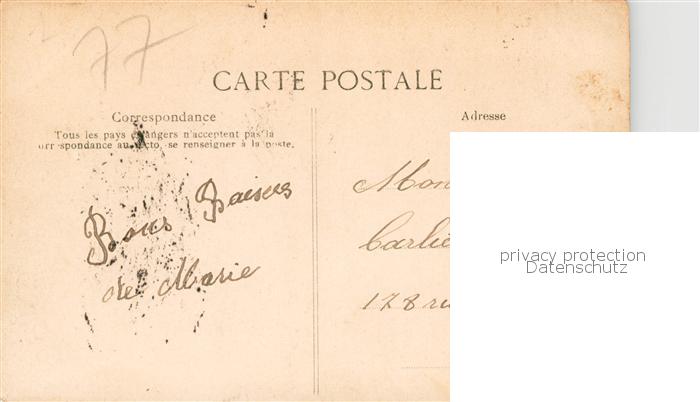 77
CARTE POSTALE
Correspondance
Tous les pays étrangers n'acceptent pas la
correspondance au recto, se renseigner à la poste.
Bons Baisers
de Marie
Adresse
Mon
Carlie
178 ru
privacy protection
Datenschutz